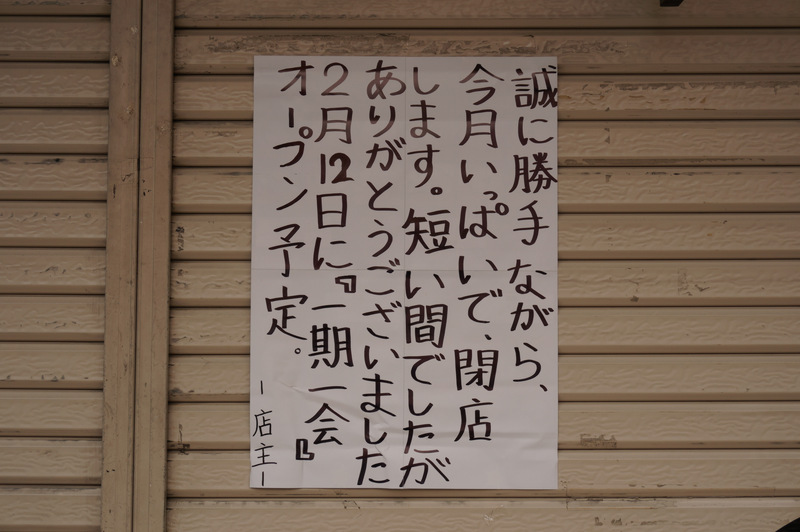 誠に勝手ながら、
今月いっぱいで、閉店
します。短い間でしたが
ありがとうございました
2月12日に『一期一会』
オープン予定。
-店主-